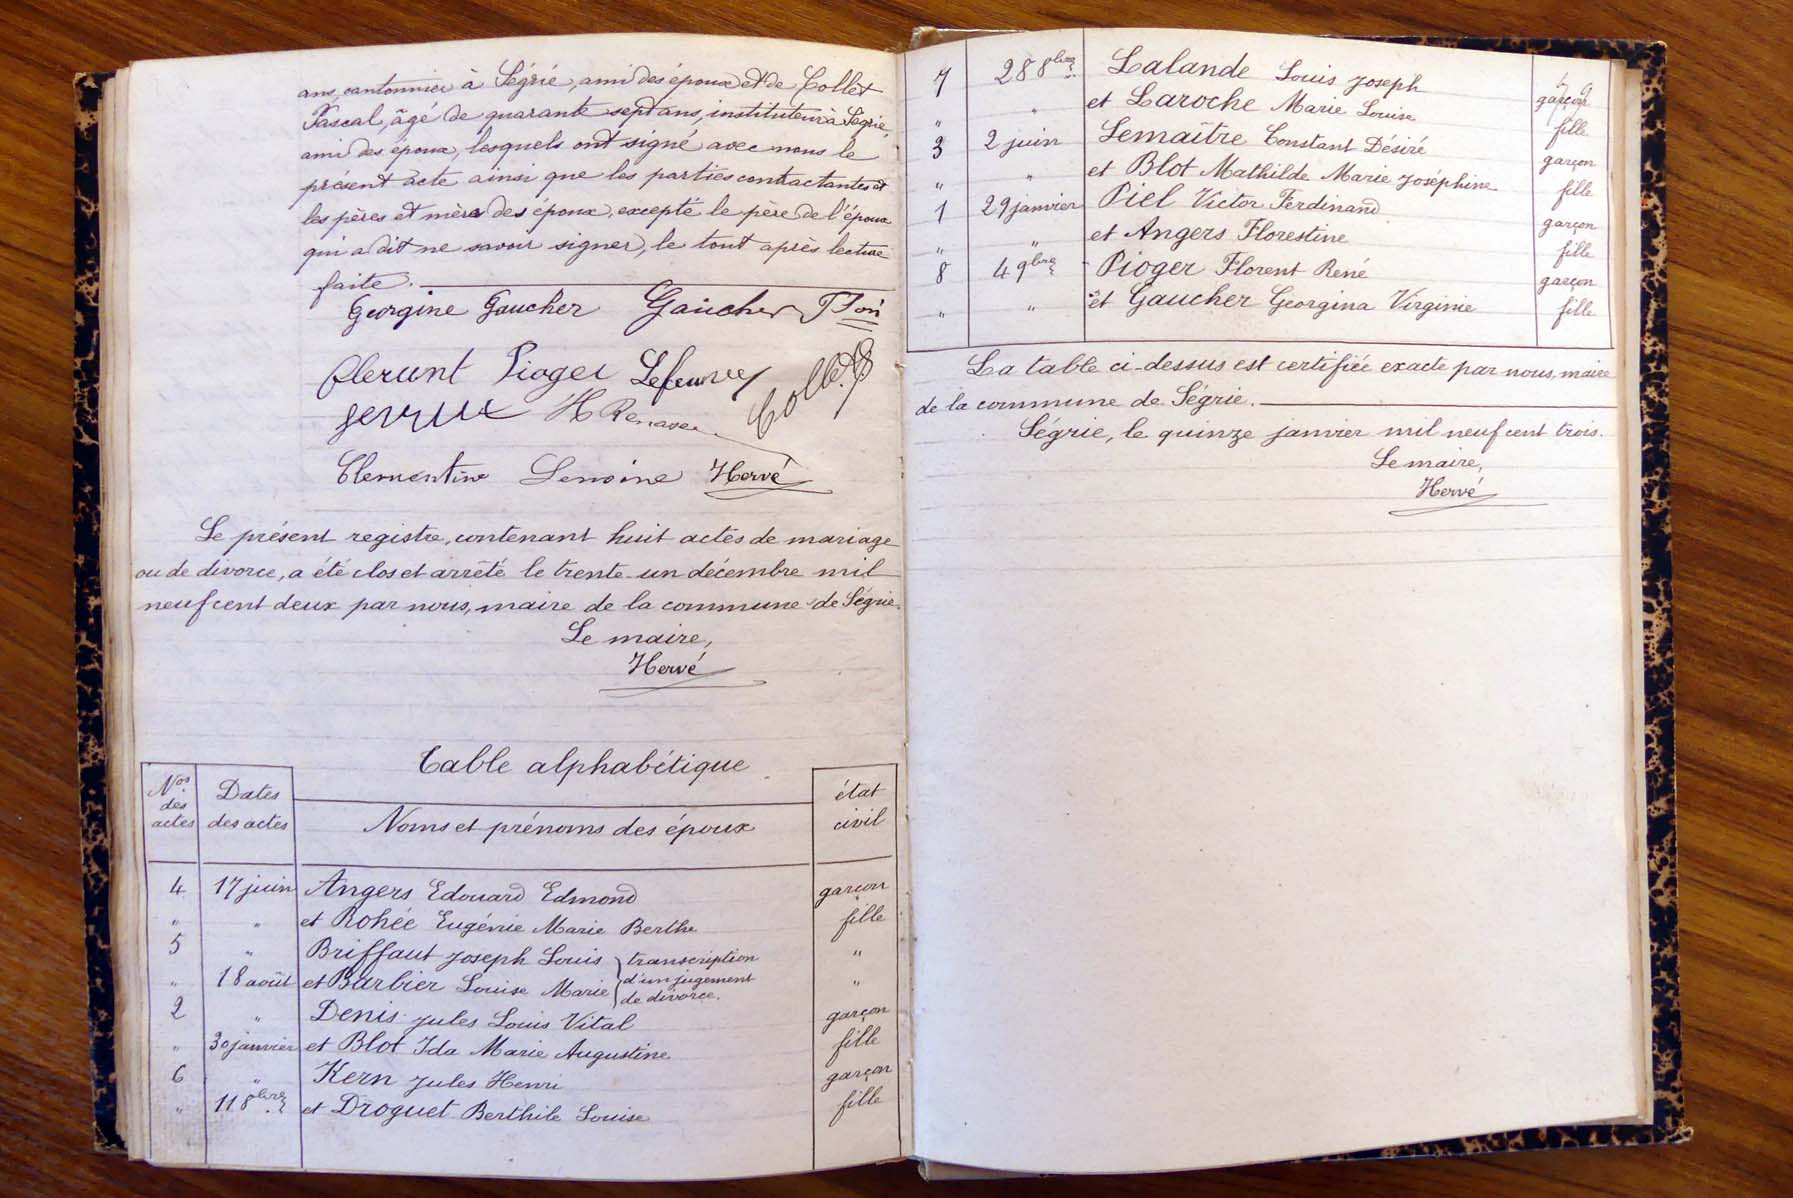 ans, cantonnier à Ségrie, ami des époux et de Collet
Pascal, âgé de quarante sept ans, instituteur à Ségrie,
ami des époux, lesquels ont signé avec nous le
présent acte ainsi que les parties contractantes et
les pères et mères des époux, excepté le père de l'époux
qui a dit ne savoir signer, le tout après lecture
faite.
Georgine Gaucher Gaucher
Pioger Lefeuvre Collet
Clementine Lemoine Hervé
Le présent registre, contenant huit actes de mariage
ou de divorce, a été clos et arrêté le trente-un décembre mil
neuf cent deux par nous, maire de la commune de Ségrie.
Le maire,
Hervé
Table alphabétique
Nos des actes Dates des actes Noms et prénoms des époux état civil
4 17 juin Angers Edouard Edmond garçon
" " et Rohée Eugénie Marie Berthe fille
5 " Briffaut Joseph Louis } transcription "
" 18 août et Barbier Louise Marie } d'un jugement "
de divorce.
2 " Denis Jules Louis Vital garçon
" 30 janvier et Blot Ida Marie Augustine fille
6 " Kern Jules Henri garçon
" 11 8bre et Droguet Berthile Louise fille
7 28 8bre Lalande Louis Joseph garçon
" " et Laroche Marie Louise fille
3 2 juin Lemaître Constant Désiré garçon
" " et Blot Mathilde Marie Joséphine fille
1 29 janvier Piel Victor Ferdinand garçon
" " et Angers Florestine fille
8 4 9bre Pioger Florent René garçon
" " et Gaucher Georgina Virginie fille
La table ci-dessus est certifiée exacte par nous, maire
de la commune de Ségrie.
Ségrie, le quinze janvier mil neuf cent trois.
Le maire,
Hervé